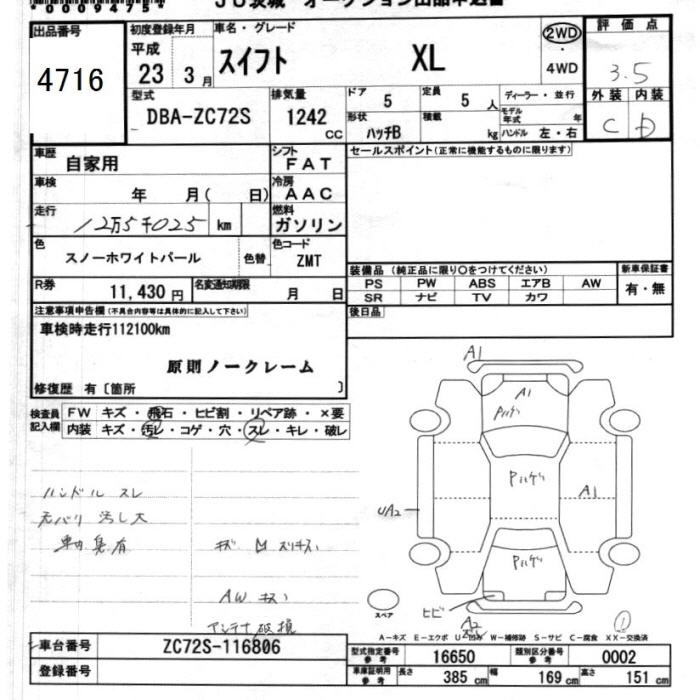 *00094754*
JU茨城 オークション出品申込書
出品番号
4716
初度登録年月
平成
23 3月
車名・グレード
スイフト XL
2WD
・
4WD
評価点
3.5
外装 内装
C D
型式
DBA-ZC72S
排気量
1242 cc
ドア 5
定員 5 人
ディーラー・並行
形状
ハッチB
積載 kg
モデル年式 年
ハンドル 左・右
車歴
自家用
シフト
FAT
セールスポイント(正常に機能するものに限ります)
車検
年 月( 日)
冷房
AAC
走行
12万5千025 km
燃料
ガソリン
色
スノーホワイトパール
色替
色コード
ZMT
装備品(純正品に限り○をつけてください)
新車保証書
PS PW ABS エアB AW
SR ナビ TV カワ
有・無
R券
11,430円
名変通知期限
月 日
後日品
注意事項申告欄(不具合内容等は具体的に記入して下さい)
車検時走行112100km
原則ノークレーム
修復歴 有〔箇所 〕
検査員記入欄
FW キズ・飛石・ヒビ割・リペア跡・×要
内装 キズ・汚レ・コゲ・穴・スレ・キレ・破レ
ハンドル スレ
天バリ 汚し大
車内臭有
キズ 凹 スリキズ
AW キズ
アンテナ破損
A1
A1
Pハゲ
Pハゲ
A1
UA2
Pハゲ
ヒビ
A2
スペア
①
A-キズ E-エクボ U-凹み W-補修跡 S-サビ C-腐食 XX-交換済
車台番号
ZC72S-116806
登録番号
型式指定番号 参考
16650
類別区分番号 参考
0002
車庫証明用 参考
長さ 385 cm
幅 169 cm
高さ 151 cm